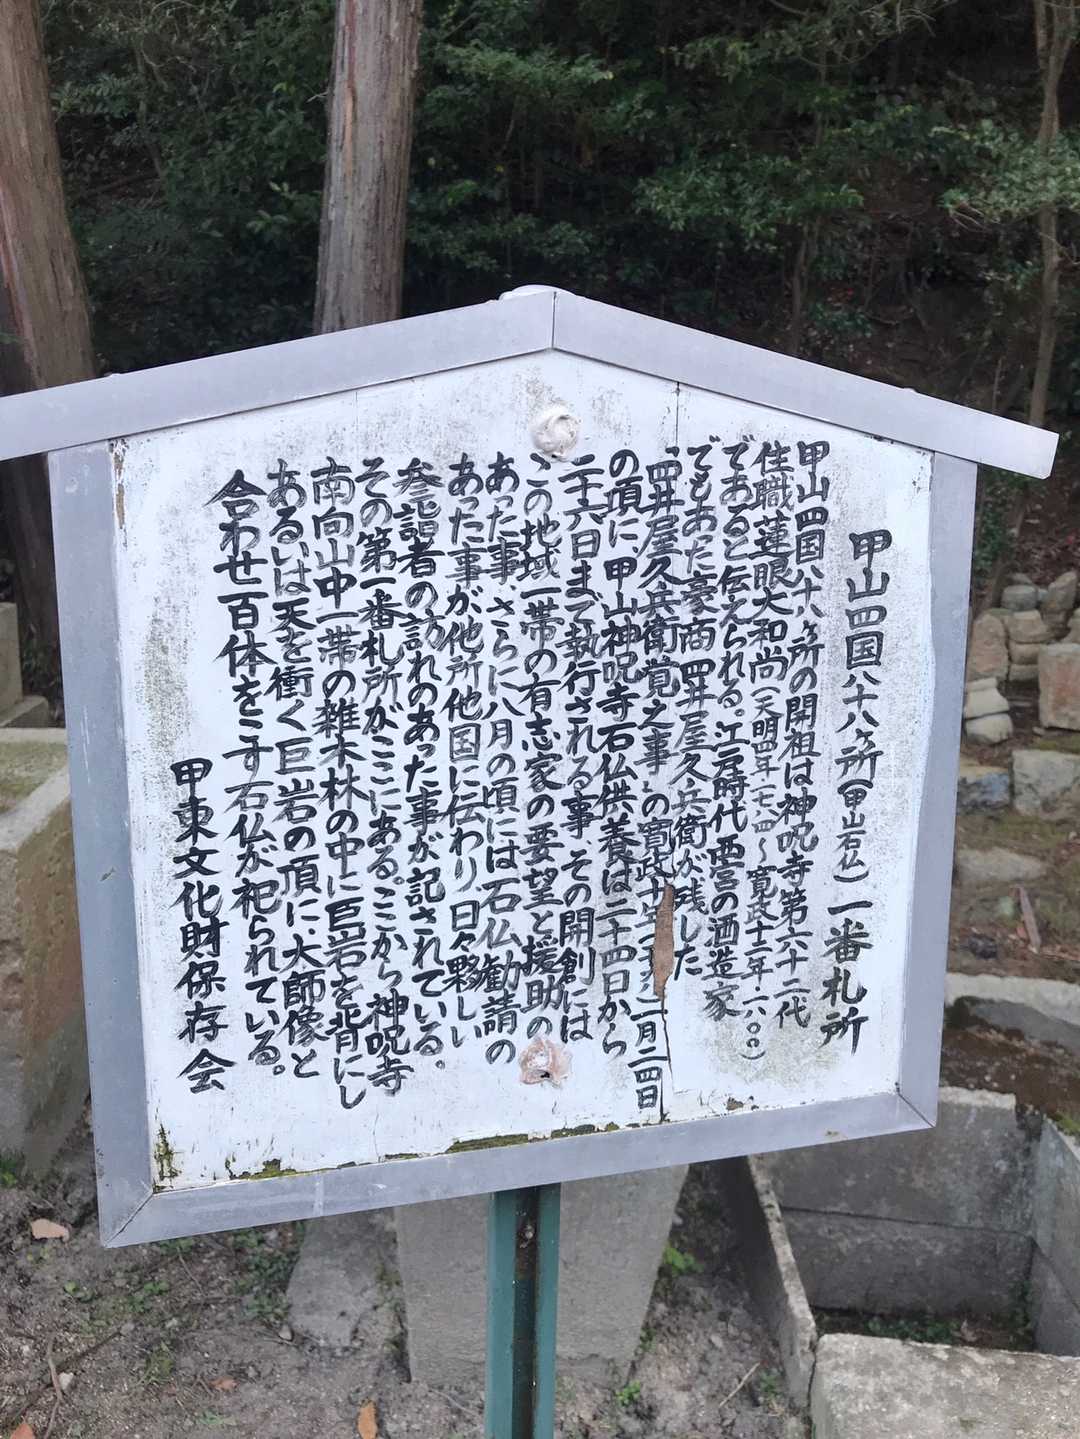 甲山四国八十八ヶ所(甲山石仏)一番札所
甲山四国八十八ヶ所の開祖は神呪寺第六十二代
住職蓮眼大和尚(天明四年一七八四～寛政十二年一八〇〇)
であると伝えられる。江戸時代西宮の酒造家
でもあった豪商四井屋久兵衛が残した
「四井屋久兵衛覚之事」の寛政十年二月二四日
の項に、甲山神呪寺石仏供養は二十四日から
二十六日まで執行される事、その開創には
この地域一帯の有志家の要望と援助の
あった事、さらに八月の頃には石仏勧請の
あった事が他所他国に伝わり日々夥しい
参詣者の訪れのあった事が記されている。
その第一番札所がここにある。ここから神呪寺
南向山中一帯の雑木林の中に巨岩を背にし
あるいは天を衝く巨岩の頂に、大師像と
合わせ一百体をこす石仏が祀られている。
甲東文化財保存会